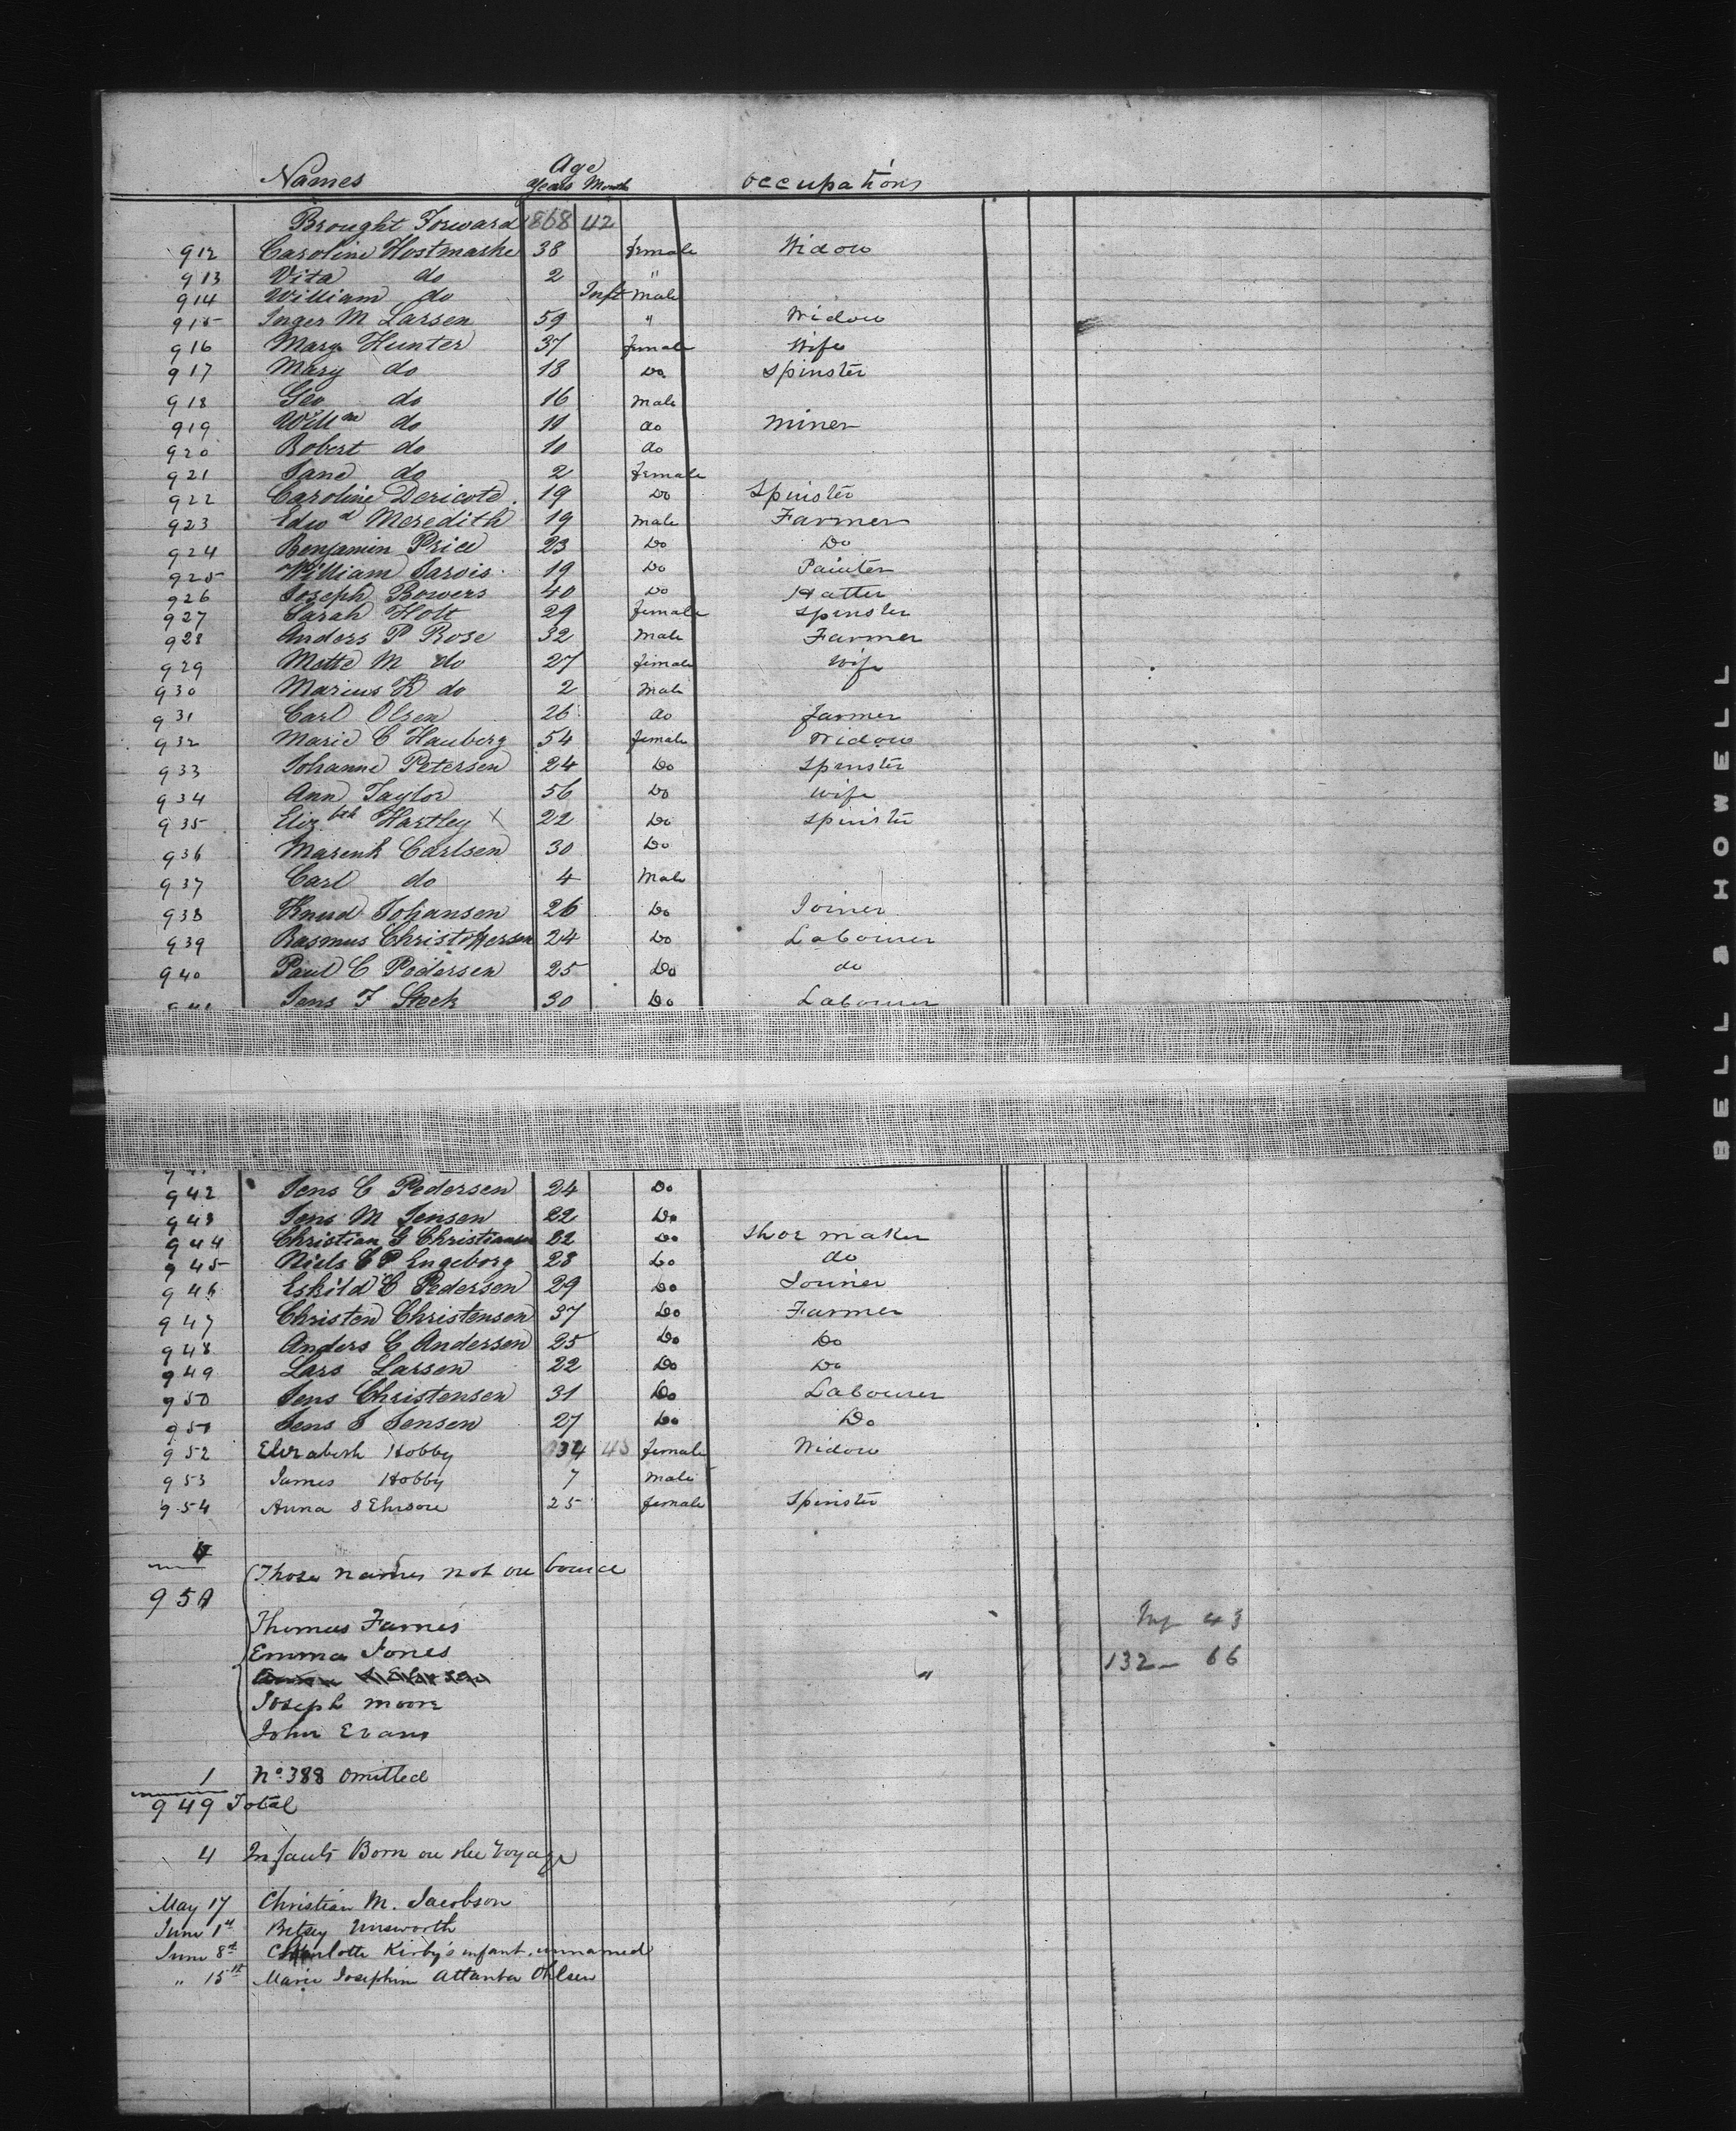 Names Age Years Month Occupations
Brought Forward 868 42
912 Caroline Hostmarke 38 female Widow
913 Vita do 2 "
914 William do Inft Male
915 Inger M Larsen 59 " Widow
916 Mary Hunter 37 female Wife
917 Mary do 18 Do Spinster
918 Geo do 16 Male
919 Willm do 11 do Miner
920 Robert do 10 do
921 Jane do 2 female
922 Caroline Dericote 19 Do Spinster
923 Edwd Meredith 19 Male Farmer
924 Benjamin Price 23 Do Do
925 William Jarvis 19 Do Painter
926 Joseph Bowers 40 Do Hatter
927 Sarah Holt 29 female Spinster
928 Anders P Rose 32 Male Farmer
929 Mette M do 27 female Wife
930 Marius K do 2 Male
931 Carl Olsen 26 do farmer
932 Marie C Hauberg 54 female Widow
933 Johanne Petersen 24 Do Spinster
934 Ann Taylor 56 Do Wife
935 Elizbeh Hartley X 22 Do Spinster
936 Marenk Carlsen 30 Do
937 Carl do 4 Male
938 Knud Johansen 26 Do Joiner
939 Rasmus Christofersen 24 Do Labourer
940 Paul C Pedersen 25 Do do
941 Jens F Steck 30 Do Labourer
942 Jens C Pedersen 24 Do
943 Jens M Jensen 22 Do
944 Christian G Christiansen 22 Do Shoe maker
945 Niels C P Engeborg 28 Do do
946 Eskild C Pedersen 29 Do Joiner
947 Christen Christensen 37 Do Farmer
948 Anders C Andersen 25 Do Do
949 Lars Larsen 22 Do Do
950 Jens Christensen 31 Do Labourer
951 Jens J Jensen 27 Do Do
952 Elizabeth Hobby 34 43 female Widow
953 James Hobby 7 Male
954 Anna S 25 female Spinster
4 Those names not on board
950
Thomas Farnes 43
Emma Jones 132 - 66
"
Joseph Moore
John Evans
1 No. 388 omitted
949 Total
4 Infants Born on the Voyage
May 17 Christian M. Jacobson
June 1st Betsey Unsworth
June 8th Charlotte Kirby's infant, unnamed
" 15th Marie Josephine Atlanta Ohlsen
BELL & HOWELL